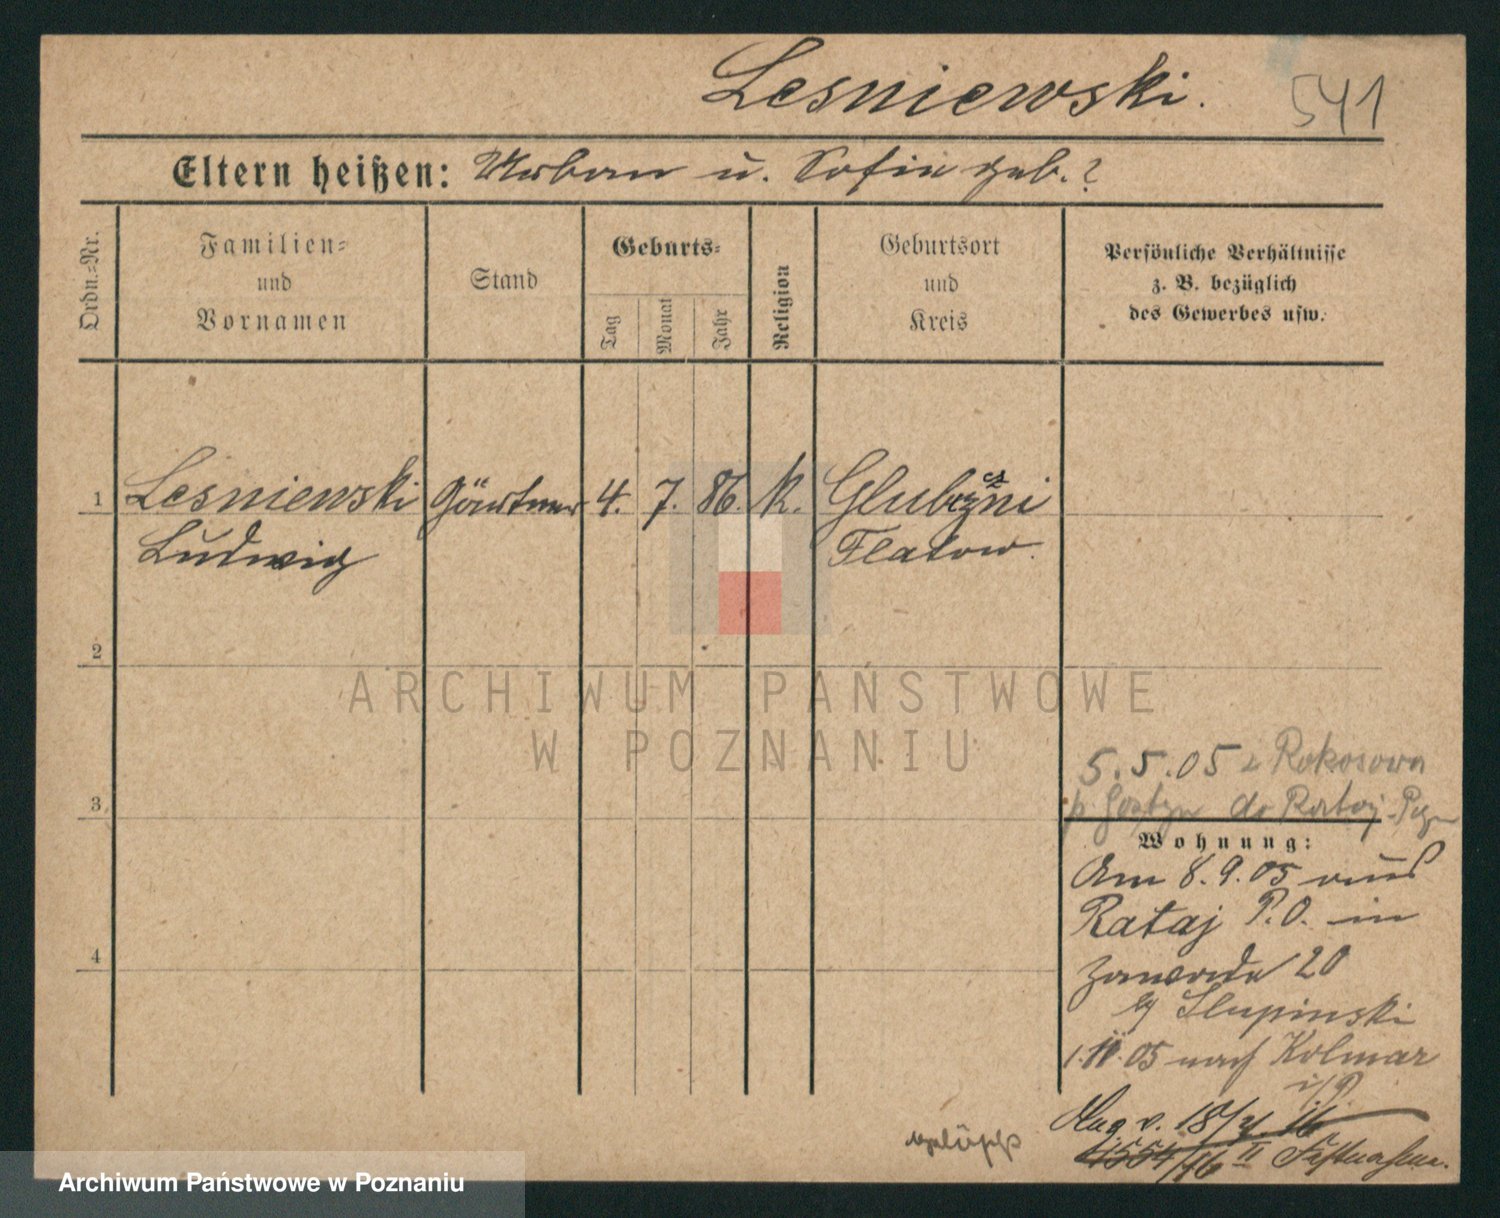 Lesniewski. 541
Eltern heißen: Urban u. Sofie geb. ?
Ordn.=Nr.
Familien=
und
Vornamen
Stand
Geburts=
Tag
Monat
Jahr
Religion
Geburtsort
und
Kreis
Persönliche Verhältnisse
z. B. bezüglich
des Gewerbes usw.
1 Lesniewski Gärtner 4. 7. 86. k.
Ludwig Flatow.
2
ARCHIWUM PAŃSTWOWE
W POZNANIU
5.5.05 z Rokosowa
3
p. Gostyn do Rataj
Wohnung:
Am 8.9.05 aus
Rataj P.O. in
4
Zawade 20
Slupinski
1. 11. 05 nach Kolmar
i/P
Festnahme.
gelöscht
Archiwum Państwowe w Poznaniu